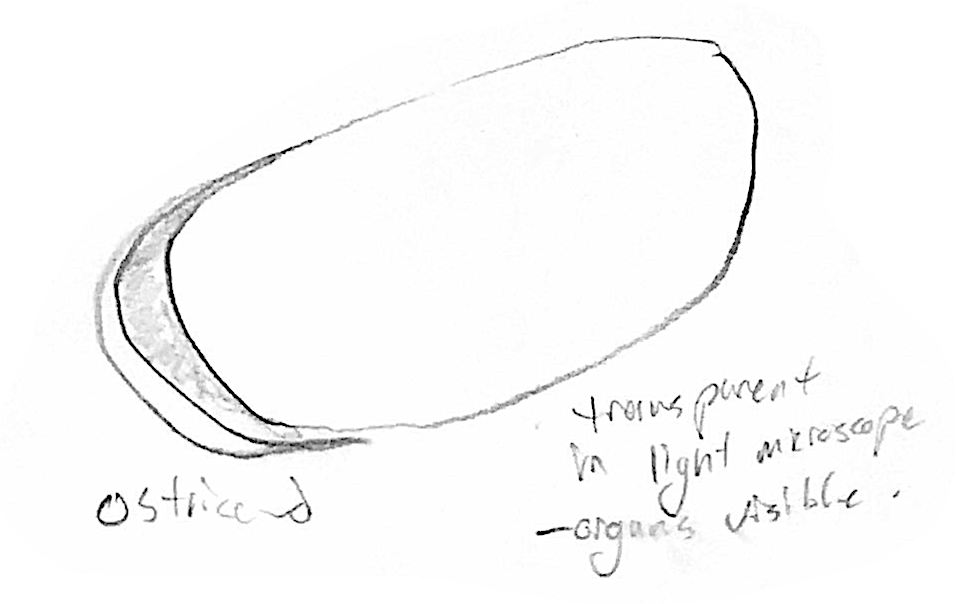 Ostricod
transparent
in light microscope
-organs visible.